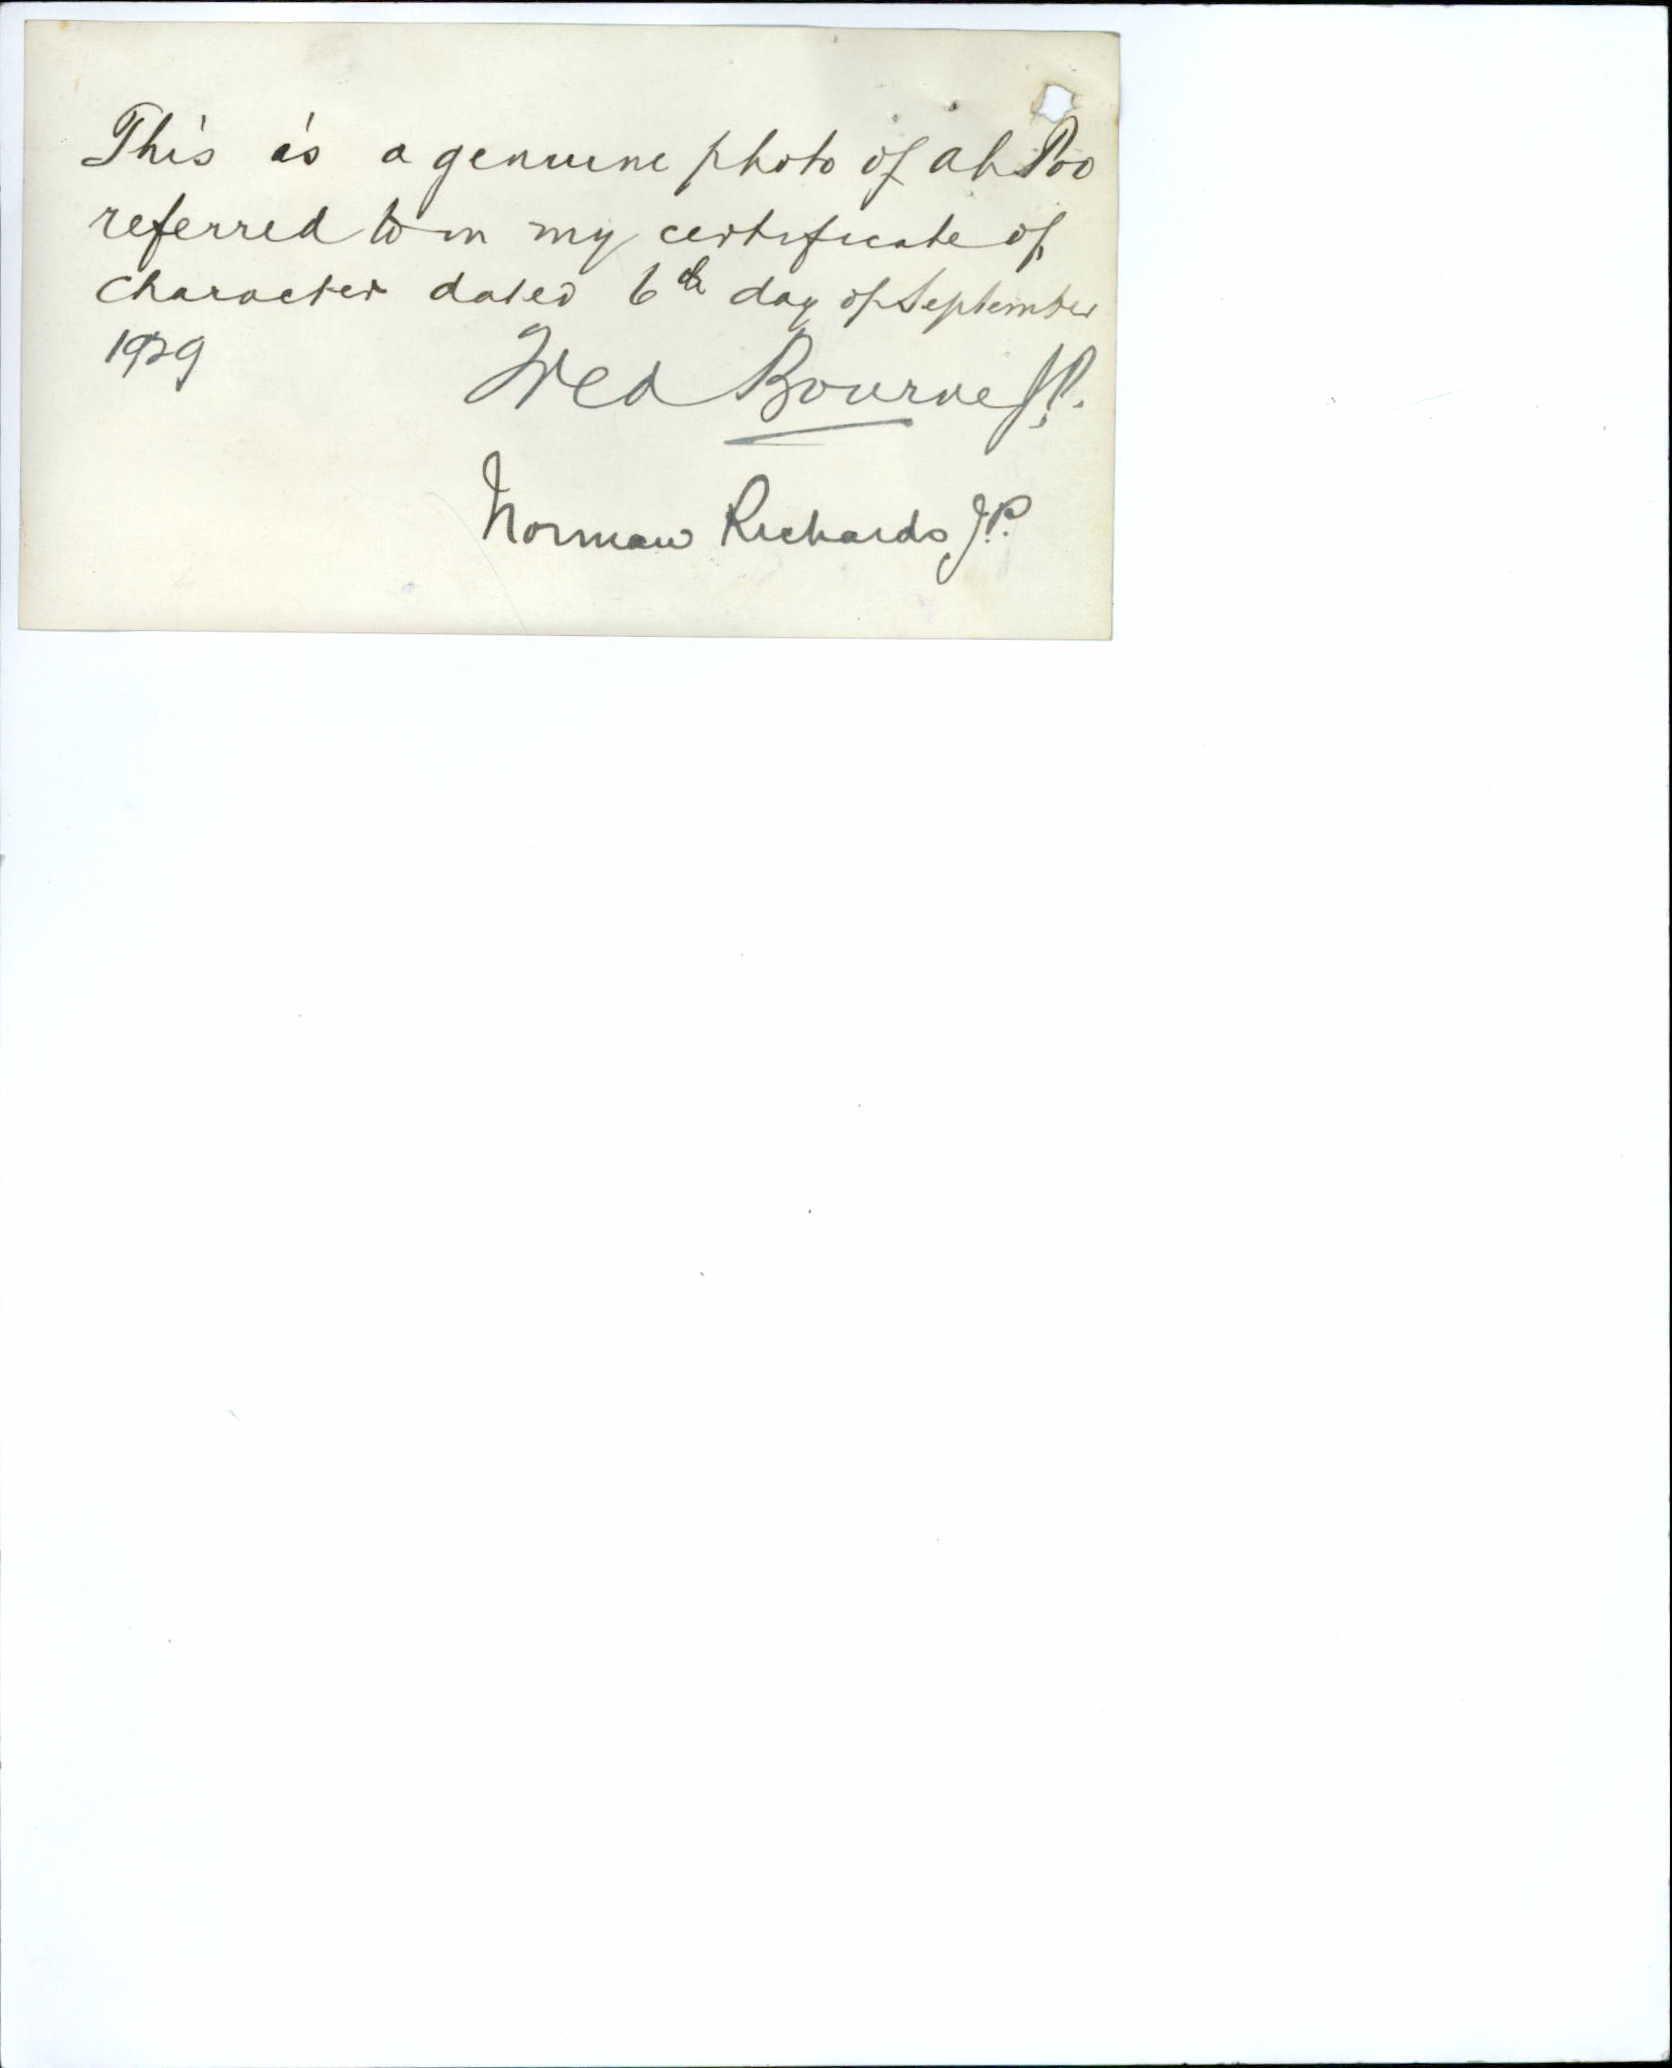 This is a genuine photo of Ah Poo
referred to in my certificate of
character dated 6th day of September
1929
Fred Bourne J.P.
Norman Richards J.P.